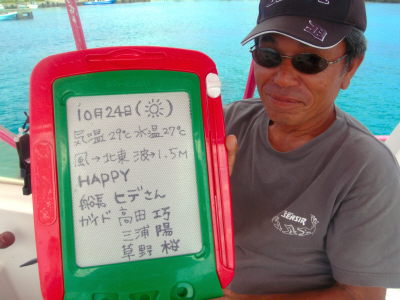 10月24日(☀)
気温29℃ 水温27℃
風→北東 波→1.5M
HAPPY
船長 ヒデさん
ガイド 高田 巧
三浦 陽
草野 桜
SEASIR